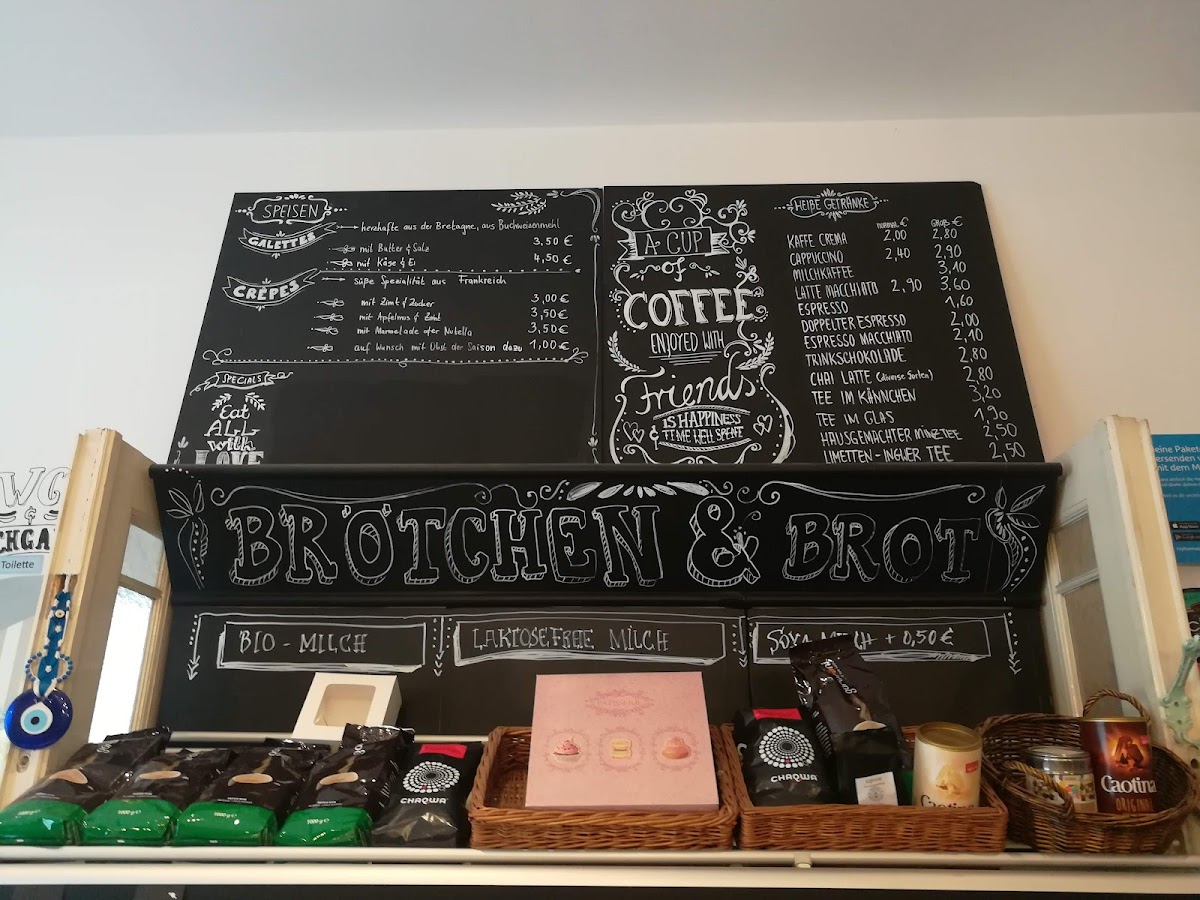 SPEISEN
GALETTES
herzhafte aus der Bretagne, aus Buchweizenmehl
mit Butter & Salz 3,50 €
mit Käse & Ei 4,50 €
CRÊPES
süße Spezialität aus Frankreich
mit Zimt & Zucker 3,00 €
mit Apfelmus & Zimt 3,50 €
mit Marmelade oder Nutella 3,50 €
auf Wunsch mit Obst der Saison dazu 1,00 €
SPECIALS
Eat
ALL
with
LOVE
A CUP
of
COFFEE
ENJOYED WITH
Friends
IS HAPPINESS
& TIME WELL SPENT
HEIßE GETRÄNKE
NORMAL € GROß €
KAFFE CREMA 2,00 2,80
CAPPUCCINO 2,40 2,90
MILCHKAFFEE 3,10
LATTE MACCHIATO 2,90 3,60
ESPRESSO 1,60
DOPPELTER ESPRESSO 2,00
ESPRESSO MACCHIATO 2,10
TRINKSCHOKOLADE 2,80
CHAI LATTE (diverse Sorten) 2,80
TEE IM KÄNNCHEN 3,20
TEE IM GLAS 1,90
HAUSGEMACHTER MINZTEE 2,50
LIMETTEN-INGWER TEE 2,50
BRÖTCHEN & BROT
BIO-MILCH
LAKTOSEFREIE MILCH
SOYA MILCH + 0,50 €
Toilette
mit dem M
1000 g e
1000 g e
1000 g e
1000 g e
CHAQWA
PATISSERIE
CHAQWA
Caotina
Caotina
ORIGINAL